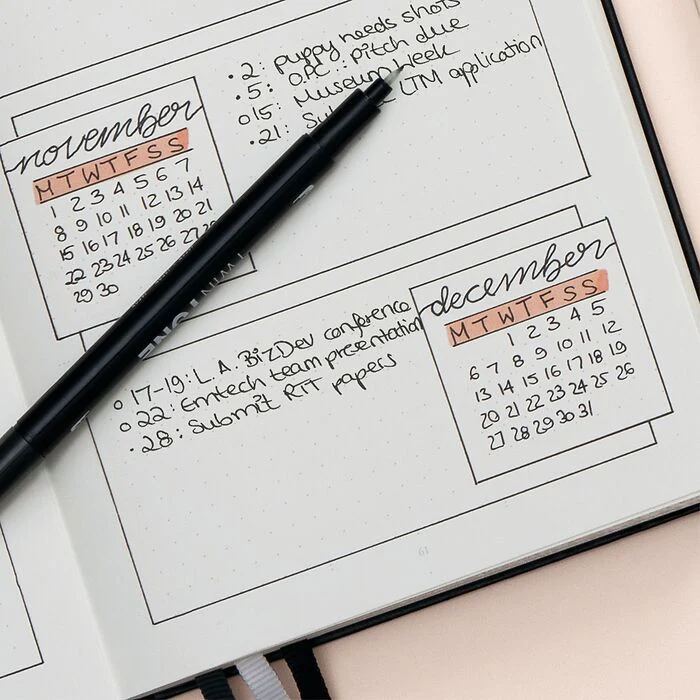 • 2: puppy needs shots
• 5: O.P.C.: pitch due
o 15: Museum Week
• 21: LTM application
november
M T W T F S S
1 2 3 4 5 6 7
8 9 10 11 12 13 14
15 16 17 18 19 20 21
22 23 24 25 26 27
29 30
TWINTONE
december
M T W T F S S
1 2 3 4 5
6 7 8 9 10 11 12
13 14 15 16 17 18 19
20 21 22 23 24 25 26
27 28 29 30 31
o 17-19: L.A. BizDev conference
o 22: Emtech team presentation
• 28: Submit RIT papers
61